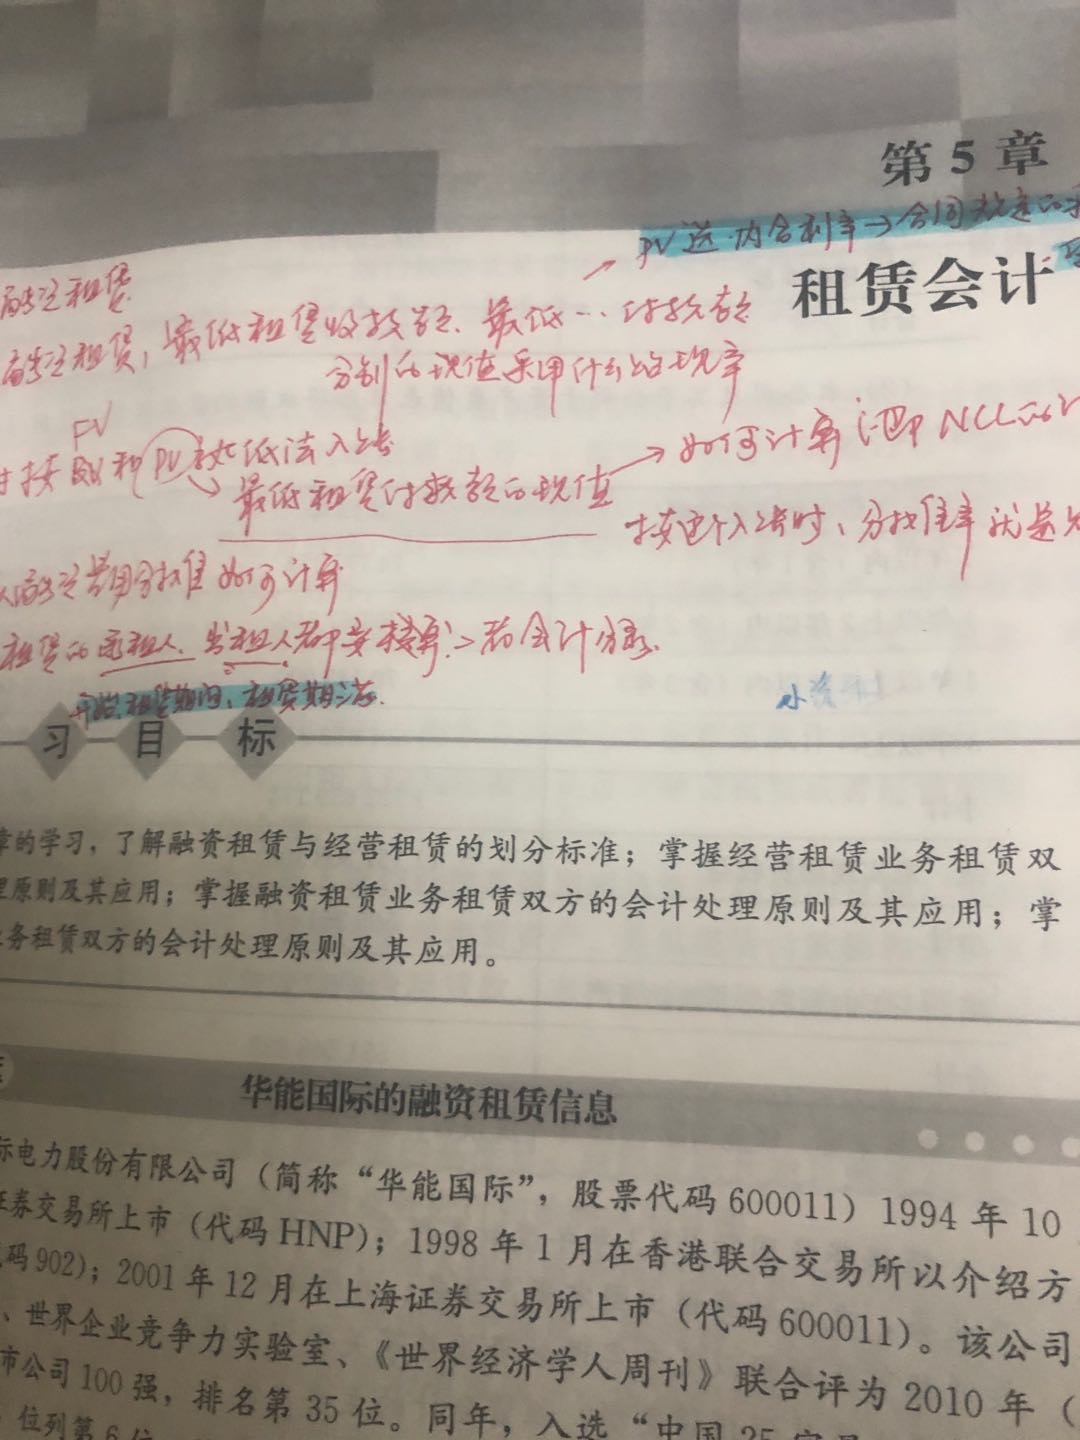 第5章
PV 选.内含利率→合同规定的
租赁会计
融资租赁
融资租赁,最低租赁收款额、最低…付款额
分别的现值采用什么的现率
FV
按 和 PV 较低法入账
最低租赁付款额的现值
→如何计算 NCL的
按这个入账时、分摊率就是
融资费用分摊 如何计算
租赁的承租人、出租人都要核算.→的会计分录.
开始、租赁期内、租赁期满.
习目标
章的学习，了解融资租赁与经营租赁的划分标准；掌握经营租赁业务租赁双
理原则及其应用；掌握融资租赁业务租赁双方的会计处理原则及其应用；掌
务租赁双方的会计处理原则及其应用。
华能国际的融资租赁信息
际电力股份有限公司（简称“华能国际”，股票代码600011）1994年10
证券交易所上市（代码HNP）；1998年1月在香港联合交易所以介绍方
码902）；2001年12月在上海证券交易所上市（代码600011）。该公司
、世界企业竞争力实验室、《世界经济学人周刊》联合评为2010年（
市公司100强，排名第35位。同年，入选“中国25家
位列第6位